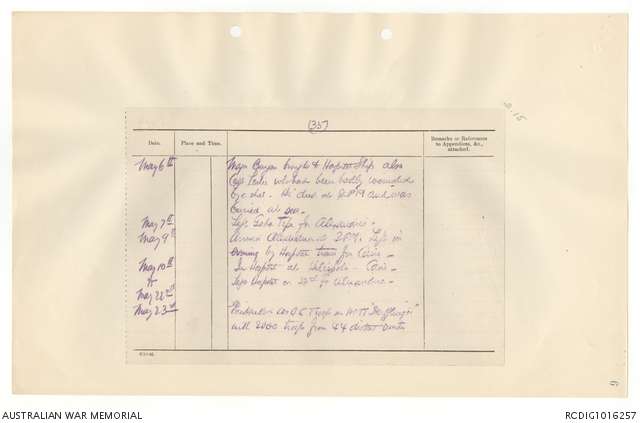 (35)
2.15
Date. Place and Time. Remarks or References to Appendices, &c., attached.
May 6th Major brought to Hospital Ship also
Capt who had been badly wounded
He died at 2 P.M and was
buried at sea.
May 7th Left Gaba Tepe for Alexandria.
May 9th Arrived Alexandria at 2 P.M. Left in
Evening by Hospital train for Cairo.
May 10th In Hospital at Heliopolis - Cairo -
to Left Hospital on 22nd for Alexandria.
May 22nd
May 23rd Embarked as O.C Troops on H.M.T
with 2000 troops from 44 units
9
AUSTRALIAN WAR MEMORIAL
RCDIG1016257